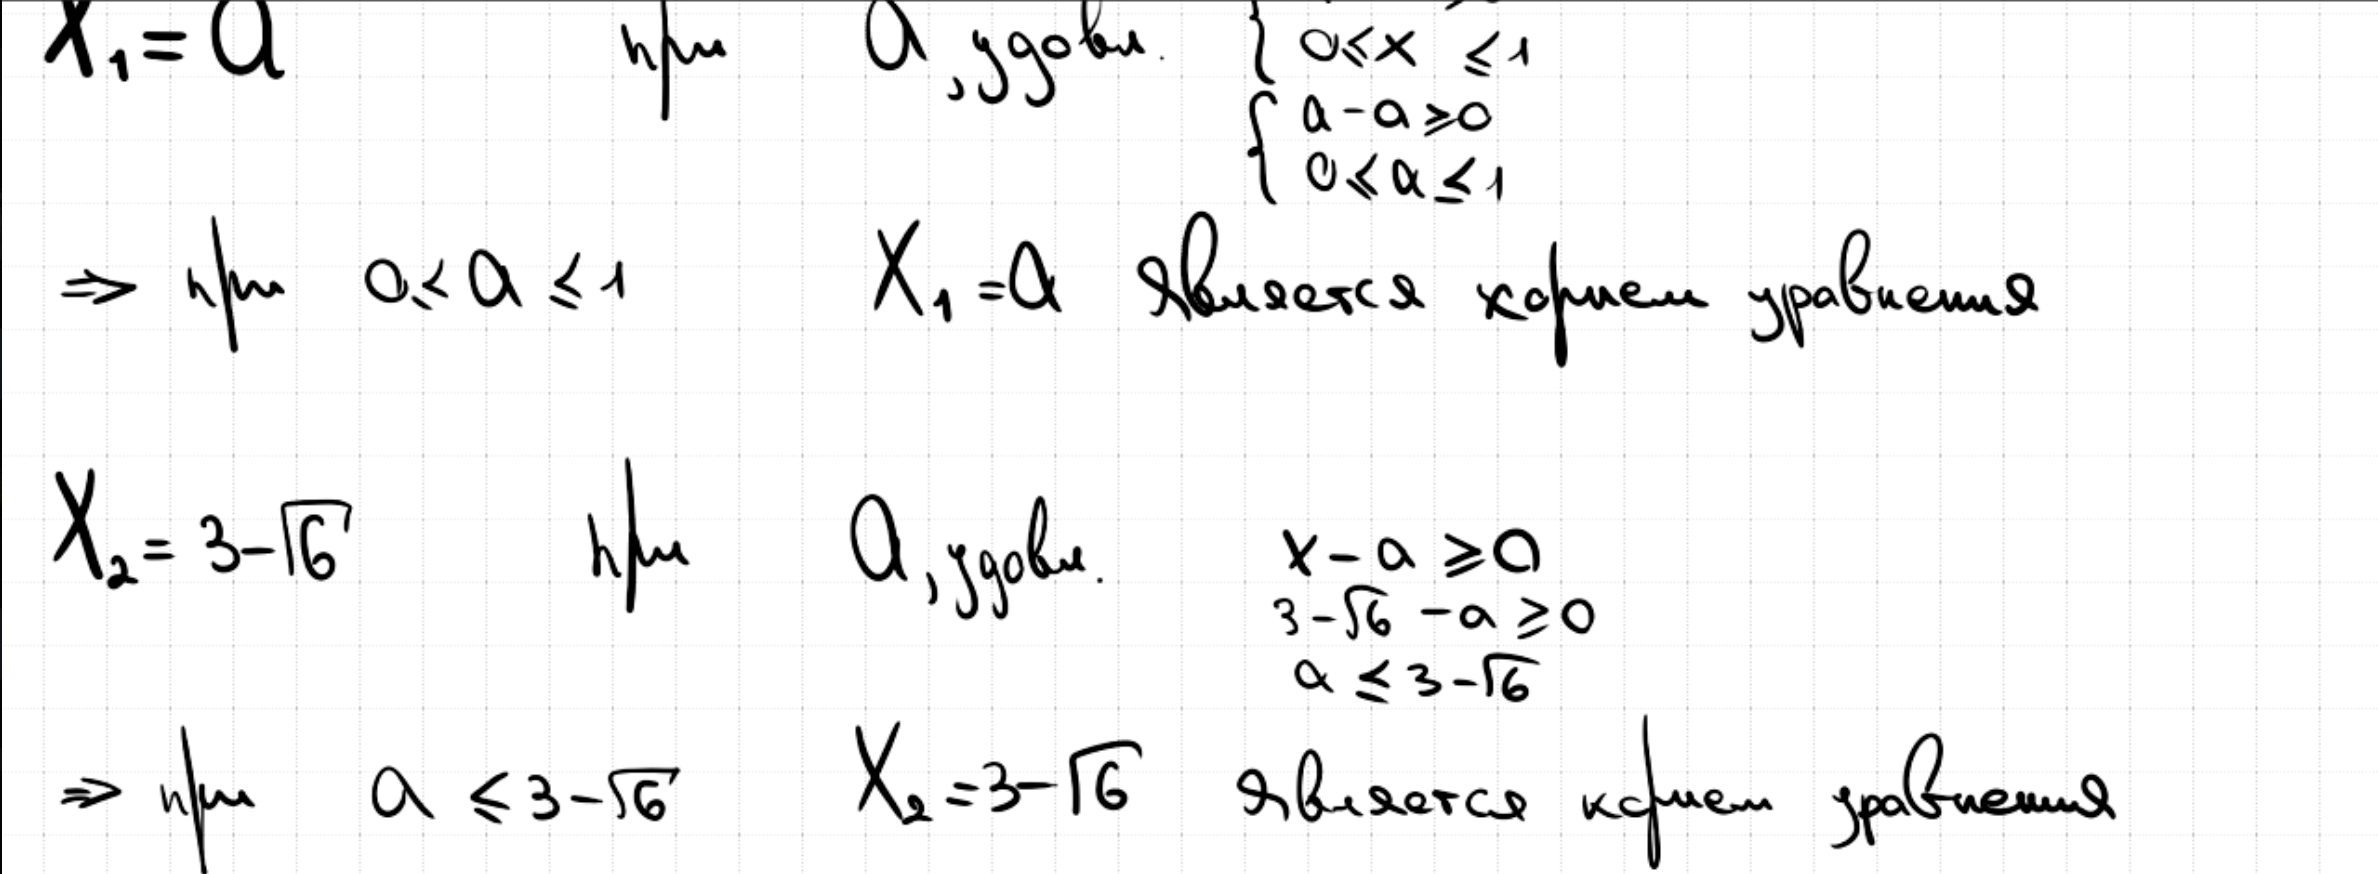 X₁ = a при a, удовл. { 0 ≤ x ≤ 1
{ a - a ⩾ 0
0 ⩽ a ≤ 1
⇒ при 0 ≤ a ≤ 1 X₁ = a является корнем уравнения
X₂ = 3-√6 при a, удовл. x - a ⩾ 0
3-√6 - a ⩾ 0
a ≤ 3-√6
⇒ при a ≤ 3-√6 X₂ = 3-√6 является корнем уравнения